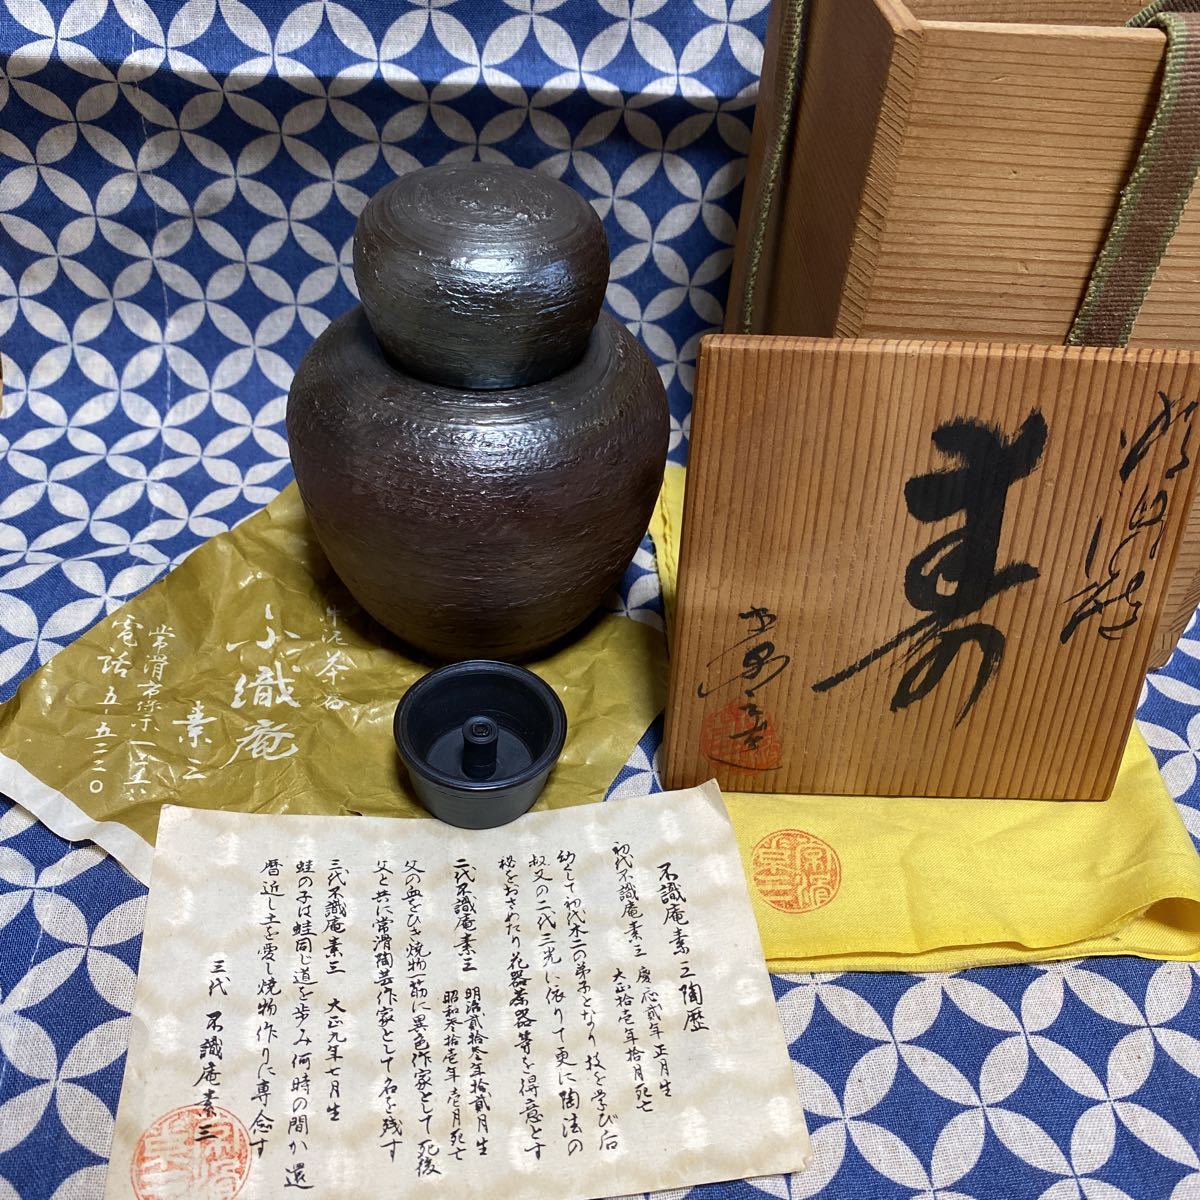 寿
朱泥茶器
不識庵
素三
電話 五-五二二〇
不識庵素三陶歴
初代不識庵素三 慶応貳年正月生
大正拾壱年拾月死亡
幼くして初代木二の弟子となり 技を学び后
叔父の二代三光に依りて更に陶法の
秘をおさめたり花器茶器等を得意とす
二代不識庵素三 明治貳拾参年拾貳月生
昭和参拾壱年壱月死亡
父の血をひき焼物一筋に異色作家として死後
父と共に常滑陶芸作家として名を残す
三代不識庵素三 大正九年七月生
蛙の子は蛙同じ道を歩み何時の間か還
暦近し土を愛し焼物作りに専念す
三代 不識庵素三